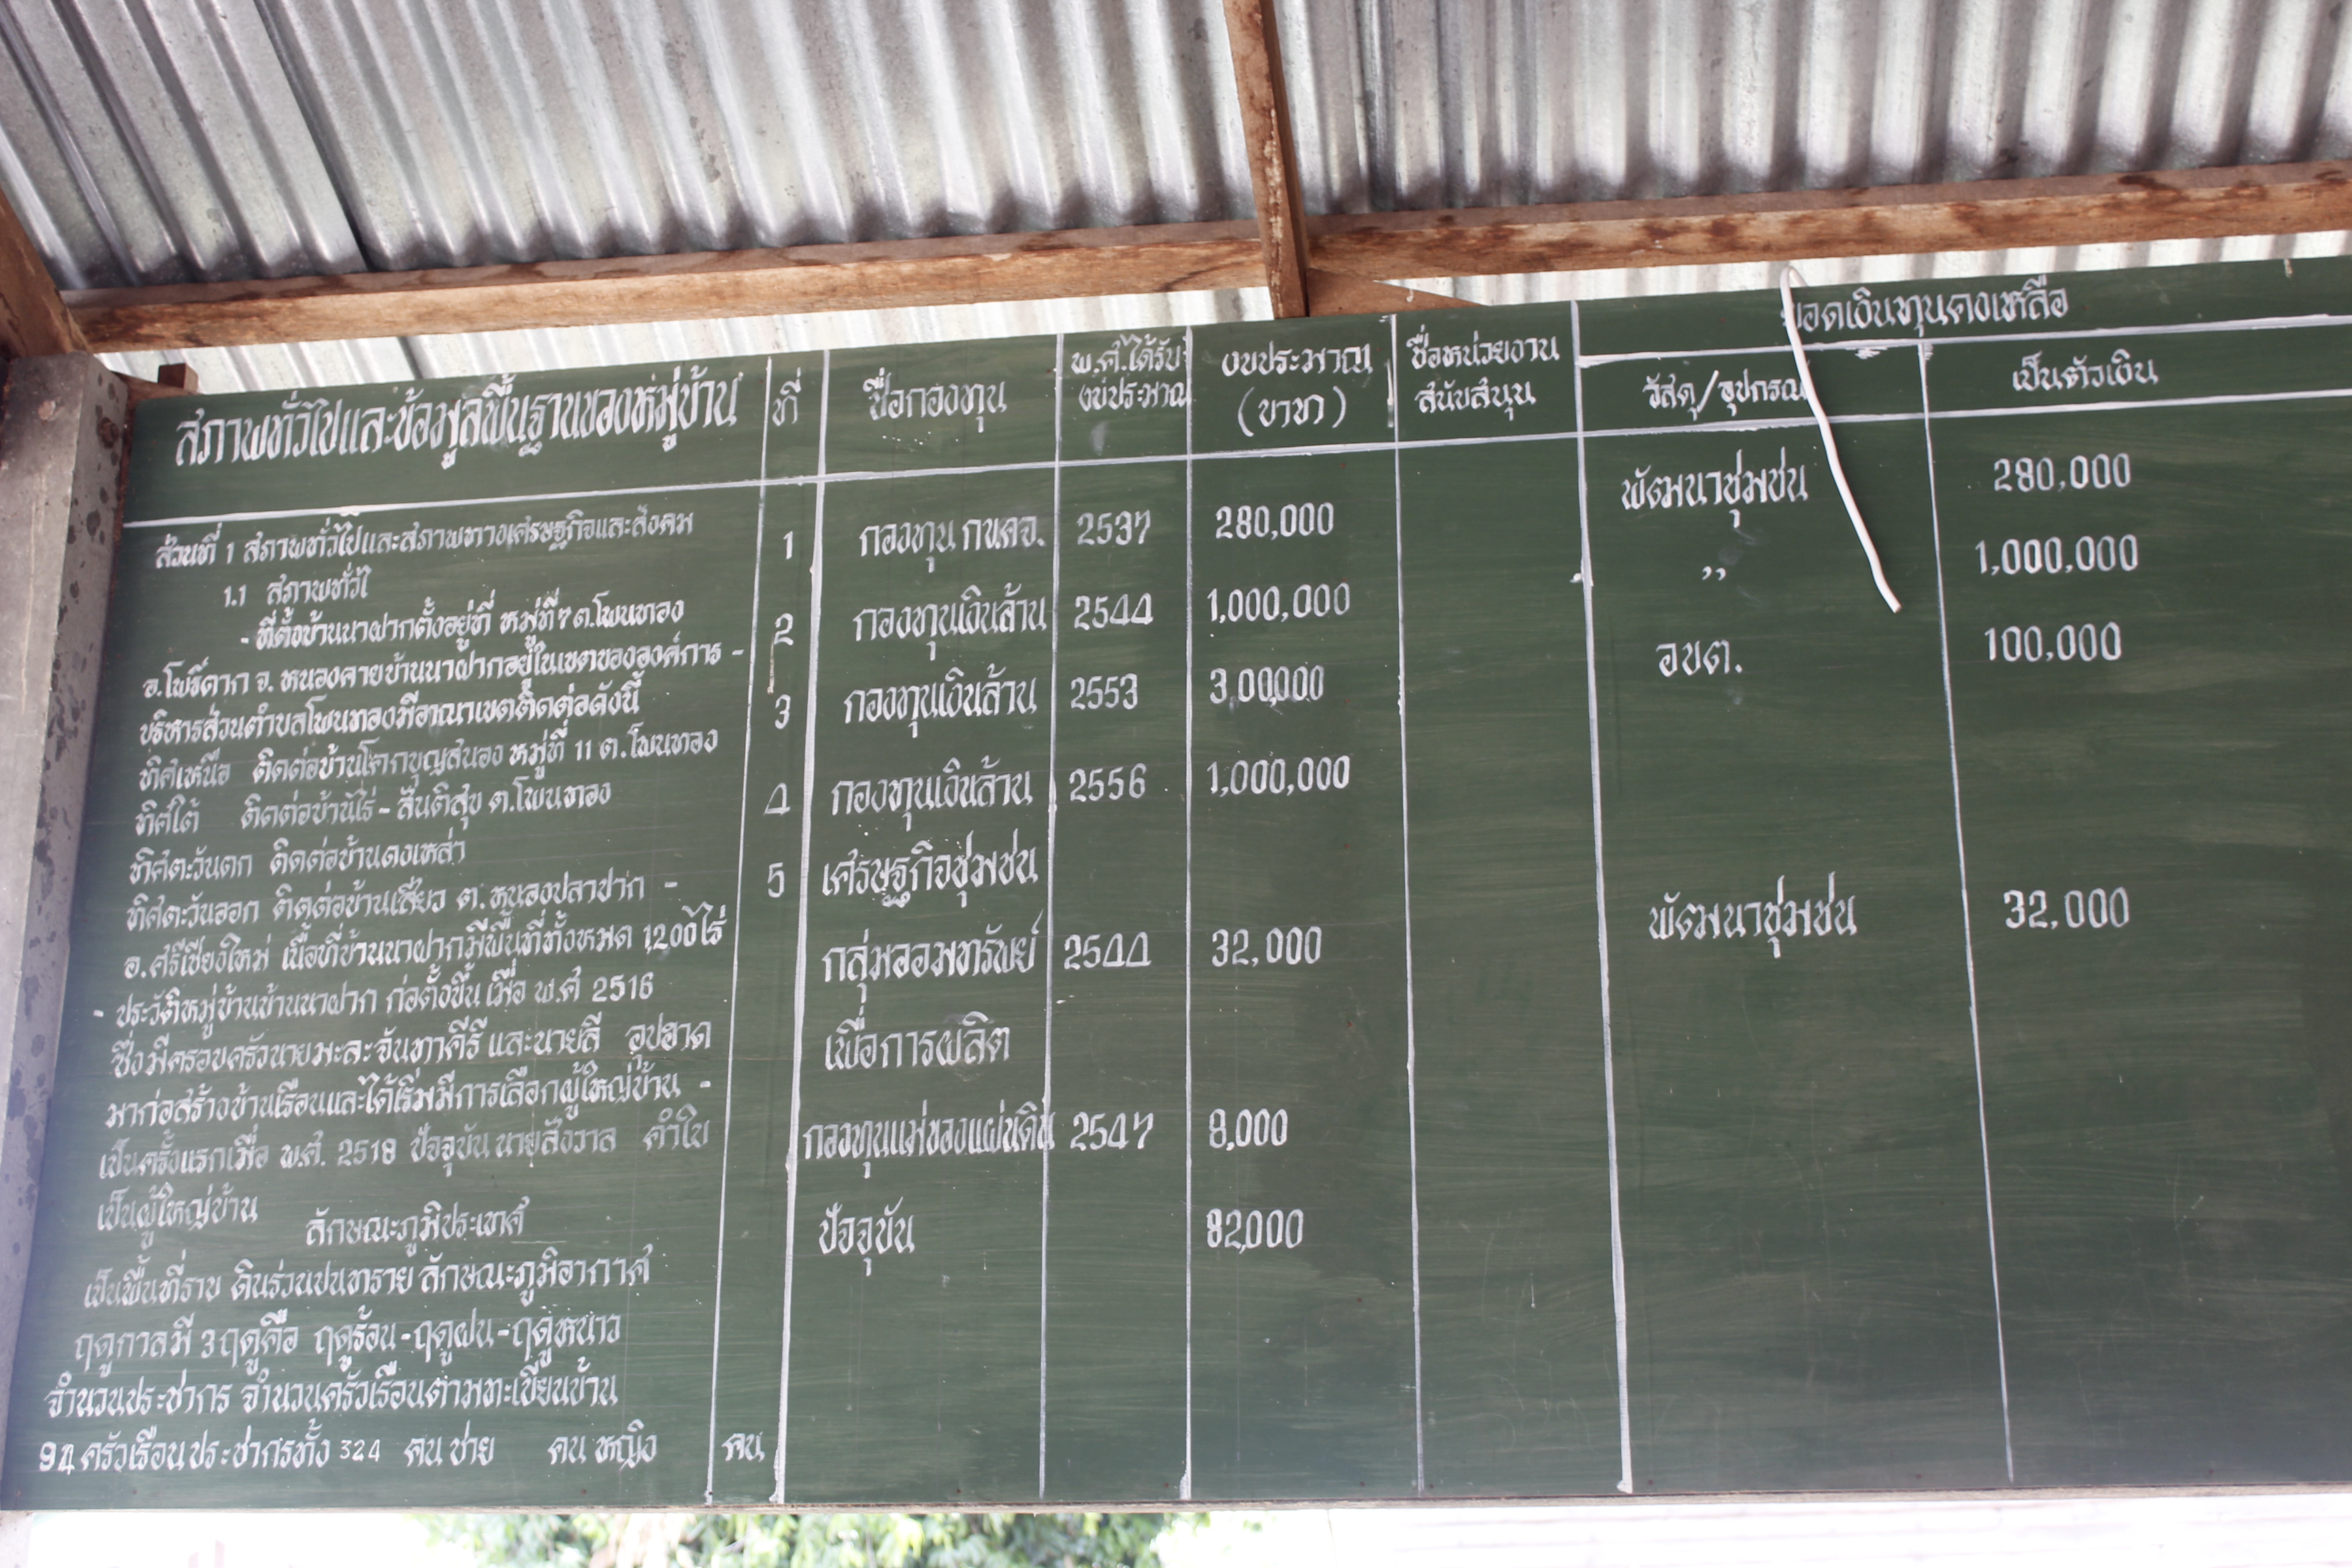 สภาพทั่วไปและข้อมูลพื้นฐานของหมู่บ้าน
ส่วนที่ 1 สภาพทั่วไปและสภาพทางเศรษฐกิจและสังคม
1.1 สภาพทั่วไ
- ที่ตั้งบ้านนาฝากตั้งอยู่ที่ หมู่ที่ 7 ต.โพนทอง
อ.โพธิ์ตาก จ. หนองคายบ้านนาฝากอยู่ในเขตขององค์การ -
บริหารส่วนตำบลโพนทองมีอาณาเขตติดต่อดังนี้
ทิศเหนือ ติดต่อบ้านโคกบุญสนอง หมู่ที่ 11 ต.โพนทอง
ทิศใต้ ติดต่อบ้านไร่ - สันติสุข ต.โพนทอง
ทิศตะวันตก ติดต่อบ้านดงเหล่า
ทิศตะวันออก ติดต่อบ้านเสียว ต. หนองปลาปาก -
อ. ศรีเชียงใหม่ เนื้อที่บ้านนาฝากมีพื้นที่ทั้งหมด 1,200 ไร่
- ประวัติหมู่บ้านบ้านนาฝาก ก่อตั้งขึ้น เมื่อ พ.ศ 2516
ซึ่งมีครอบครัวนายมะละ จันทาคีรี และนายลี อุปฮาด
มาก่อสร้างบ้านเรือนและได้เริ่มมีการเลือกผู้ใหญ่บ้าน -
เป็นครั้งแรกเมื่อ พ.ศ. 2518 ปัจจุบัน นายสังวาล คำใบ
เป็นผู้ใหญ่บ้าน
ลักษณะภูมิประเทศ
เป็นพื้นที่ราบ ดินร่วนปนทราย ลักษณะภูมิอากาศ
ฤดูกาลมี 3 ฤดูคือ ฤดูร้อน - ฤดูฝน - ฤดูหนาว
จำนวนประชากร จำนวนครัวเรือนตามทะเบียนบ้าน
94 ครัวเรือน ประชากรทั้ง 324 คน ชาย คน หญิง คน
ที่ ชื่อกองทุน พ.ศ.ได้รับงบประมาณ งบประมาณ (บาท) ชื่อหน่วยงานสนับสนุน ยอดเงินทุนคงเหลือ
วัสดุ/อุปกรณ์ เป็นตัวเงิน
1 กองทุน กขคจ. 2537 280,000 พัฒนาชุมชน 280,000
2 กองทุนเงินล้าน 2544 1,000,000 ,, 1,000,000
3 กองทุนเงินล้าน 2553 3,00,000 อบต. 100,000
4 กองทุนเงินล้าน 2556 1,000,000
5 เศรษฐกิจชุมชน
กลุ่มออมทรัพย์ 2544 32,000 พัฒนาชุมชน 32,000
เพื่อการผลิต
กองทุนแม่ของแผ่นดิน 2547 8,000
ปัจจุบัน 82,000